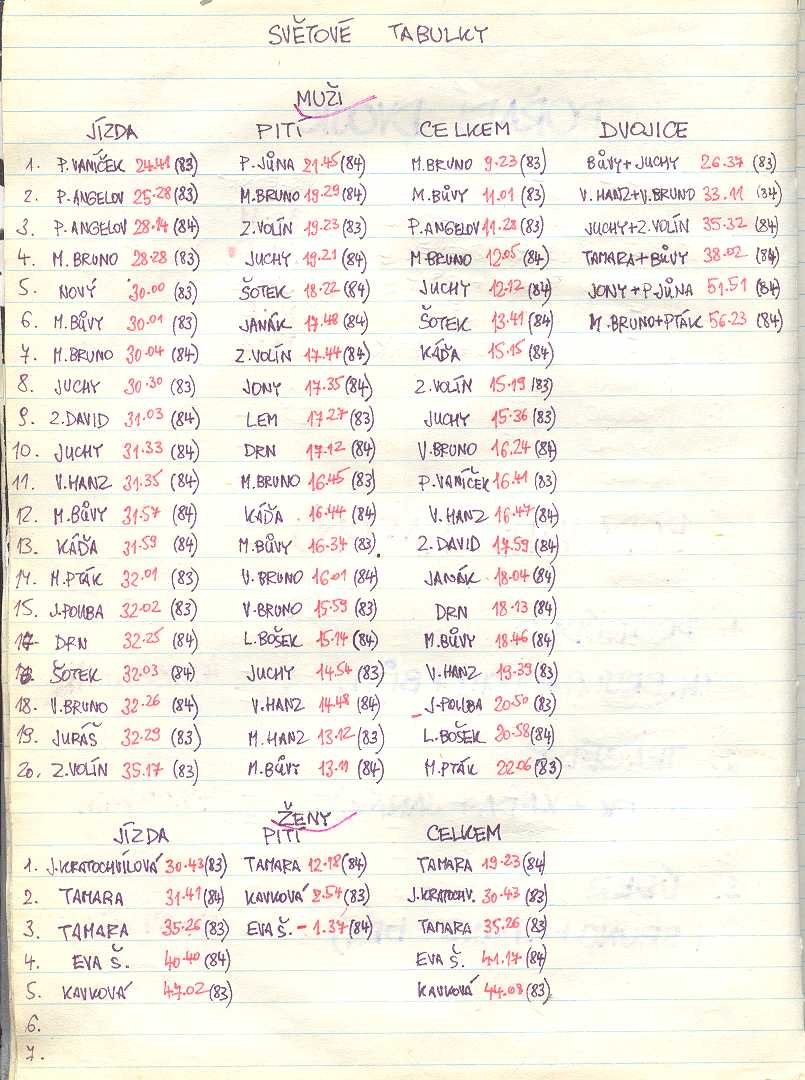 SVĚTOVÉ TABULKY
MUŽI
JÍZDA PITÍ CELKEM DVOJICE
1. P.VANÍČEK 24.41 (83) P.JŮNA 21.45 (84) M.BRUNO 9.23 (83) BŮVY+JUCHY 26.37 (83)
2. P.ANGELOV 25.28 (83) M.BRUNO 19.29 (84) M.BŮVY 11.01 (83) V.HANZ+V.BRUNO 33.11 (84)
3. P.ANGELOV 28.14 (84) Z.VOLÍN 19.23 (83) P.ANGELOV 11.28 (83) JUCHY+Z.VOLÍN 35.32 (84)
4. M.BRUNO 28.28 (83) JUCHY 19.21 (84) M.BRUNO 12.05 (84) TAMARA+BŮVY 38.02 (84)
5. NOVÝ 30.00 (83) ŠOTEK 18.22 (84) JUCHY 12.12 (84) JONY+P.JŮNA 51.51 (84)
6. M.BŮVY 30.01 (83) JANÁK 17.48 (84) ŠOTEK 13.41 (84) M.BRUNO+PTÁK 56.23 (84)
7. M.BRUNO 30.04 (84) Z.VOLÍN 17.44 (84) KÁĎA 15.15 (84)
8. JUCHY 30.30 (83) JONY 17.35 (84) Z.VOLÍN 15.19 (83)
9. Z.DAVID 31.03 (84) LEM 17.27 (83) JUCHY 15.36 (83)
10. JUCHY 31.33 (84) DRN 17.12 (84) V.BRUNO 16.24 (84)
11. V.HANZ 31.35 (84) M.BRUNO 16.45 (83) P.VANÍČEK 16.41 (83)
12. M.BŮVY 31.57 (84) KÁĎA 16.44 (84) V.HANZ 16.47 (84)
13. KÁĎA 31.59 (84) M.BŮVY 16.34 (83) Z.DAVID 17.59 (84)
14. M.PTÁK 32.01 (83) V.BRUNO 16.01 (84) JANÁK 18.04 (84)
15. J.POUBA 32.02 (83) V.BRUNO 15.59 (83) DRN 18.13 (84)
DRN 32.25 (84) L.BOŠEK 15.14 (84) M.BŮVY 18.46 (84)
ŠOTEK 32.03 (84) JUCHY 14.54 (83) V.HANZ 19.39 (83)
18. V.BRUNO 32.26 (84) V.HANZ 14.48 (84) J.POUBA 20.50 (83)
19. JURÁŠ 32.29 (83) M.HANZ 13.12 (83) L.BOŠEK 20.58 (84)
20. Z.VOLÍN 35.17 (83) M.BŮVY 13.11 (84) M.PTÁK 22.06 (83)
ŽENY
JÍZDA PITÍ CELKEM
1. J.KRATOCHVÍLOVÁ 30.43 (83) TAMARA 12.18 (84) TAMARA 19.23 (84)
2. TAMARA 31.41 (84) KAVKOVÁ 2.54 (83) J.KRATOCHV. 30.43 (83)
3. TAMARA 35.26 (83) EVA Š. -1.37 (84) TAMARA 35.26 (83)
4. EVA Š. 40.40 (84) EVA Š. 41.17 (84)
5. KAVKOVÁ 47.02 (83) KAVKOVÁ 44.08 (83)
6.
7.